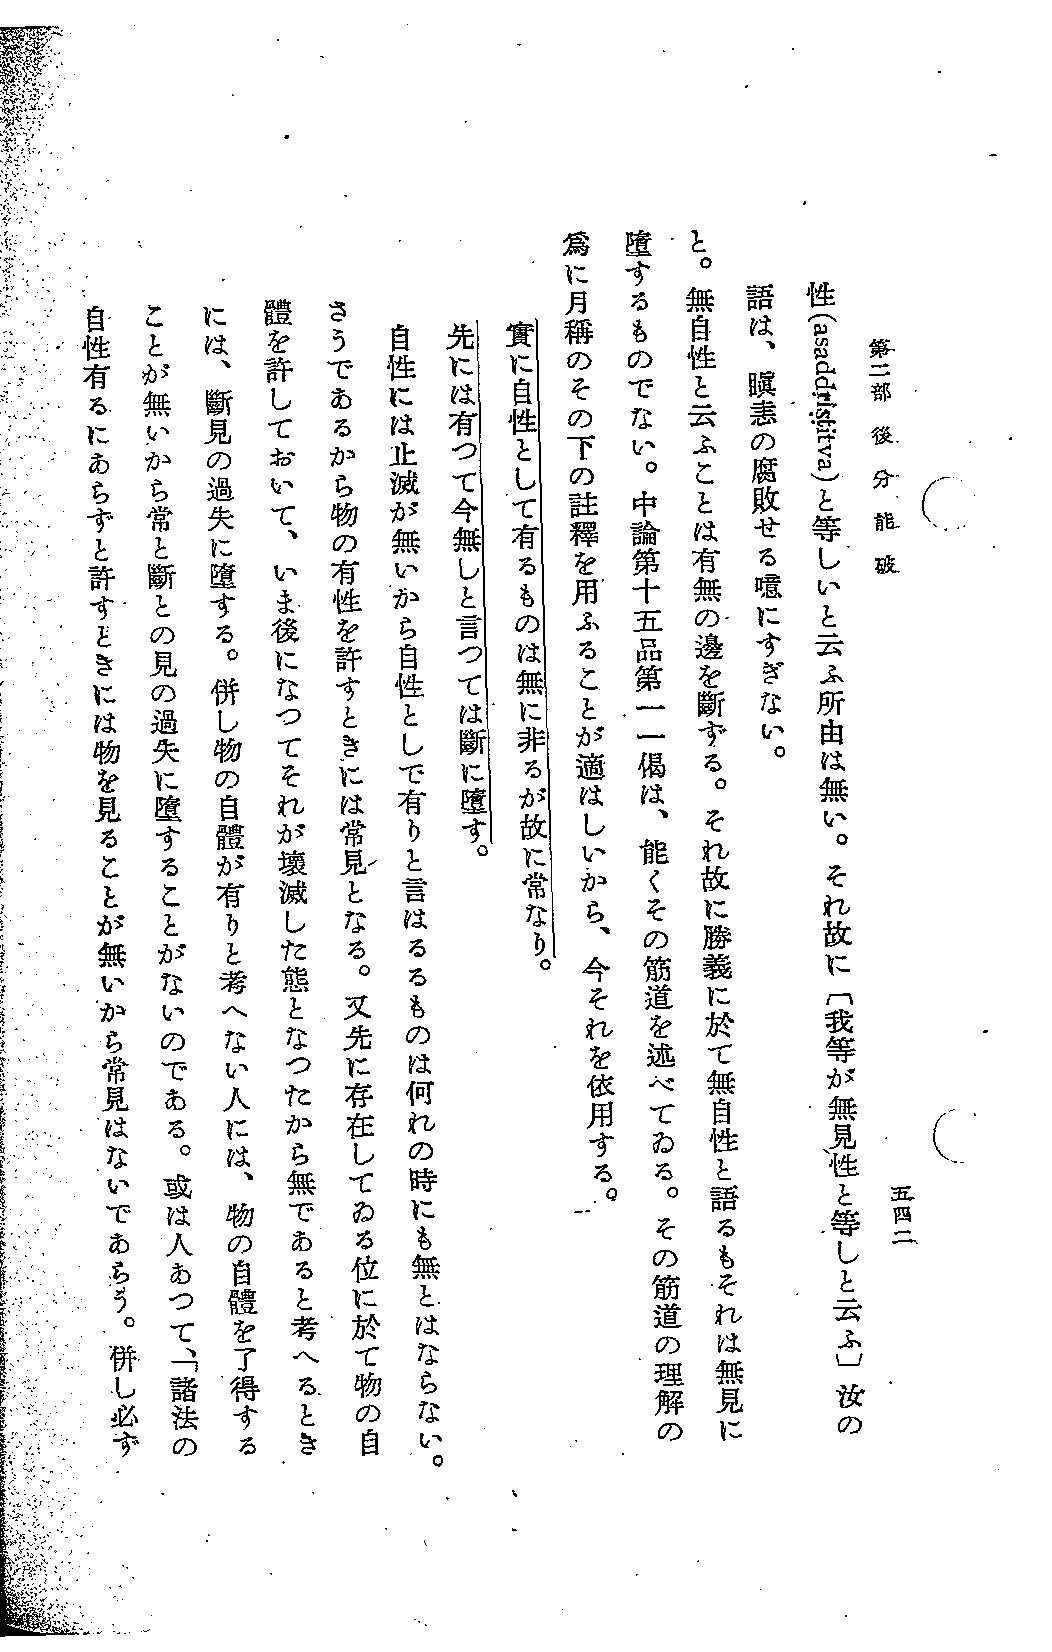 第二部 後分能破
五四二
性(asaddṛṣṭitva)と等しいと云ふ所由は無い。それ故に〔我等が無見性と等しと云ふ〕汝の
語は、瞋恚の腐敗せる噫にすぎない。
と。無自性と云ふことは有無の邊を斷ずる。それ故に勝義に於て無自性と語るもそれは無見に
墮するものでない。中論第十五品第一一偈は、能くその筋道を述べてゐる。その筋道の理解の
爲に月稱のその下の註釋を用ふることが適はしいから、今それを依用する。
實に自性として有るものは無に非るが故に常なり。
先には有つて今無しと言つては斷に墮す。
自性には止滅が無いから自性として有りと言はるるものは何れの時にも無とはならない。
さうであるから物の有性を許すときには常見となる。又先に存在してゐる位に於て物の自
體を許しておいて、いま後になつてそれが壞滅した態となつたから無であると考へるとき
には、斷見の過失に墮する。併し物の自體が有りと考へない人には、物の自體を了得する
ことが無いから常と斷との見の過失に墮することがないのである。或は人あつて、「諸法の
自性有るにあらずと許すときには物を見ることが無いから常見はないであらう。併し必ず